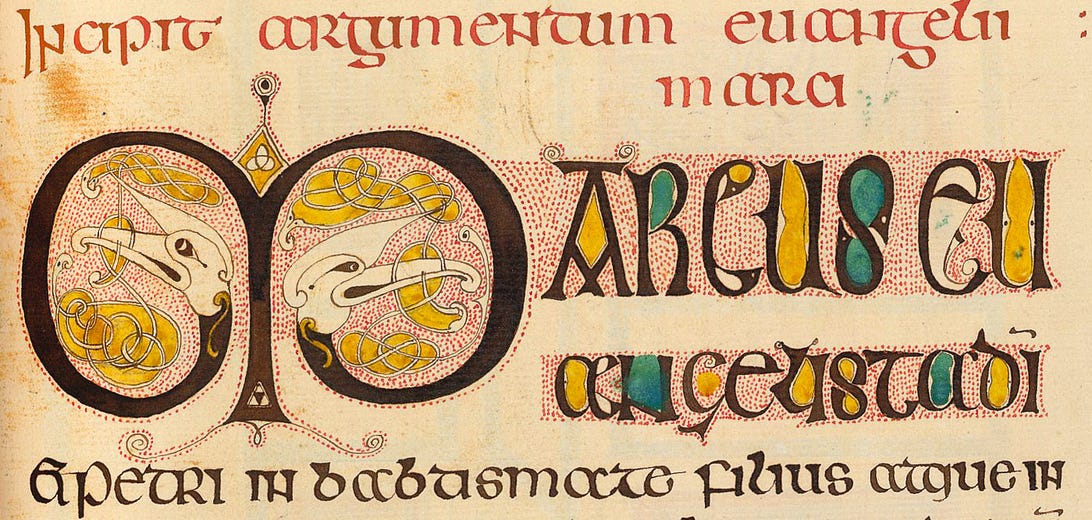 INcipit argumentum euangelii :
marci
MARCUS EU
angelista dī
& petri iN babtismate filius atque iN